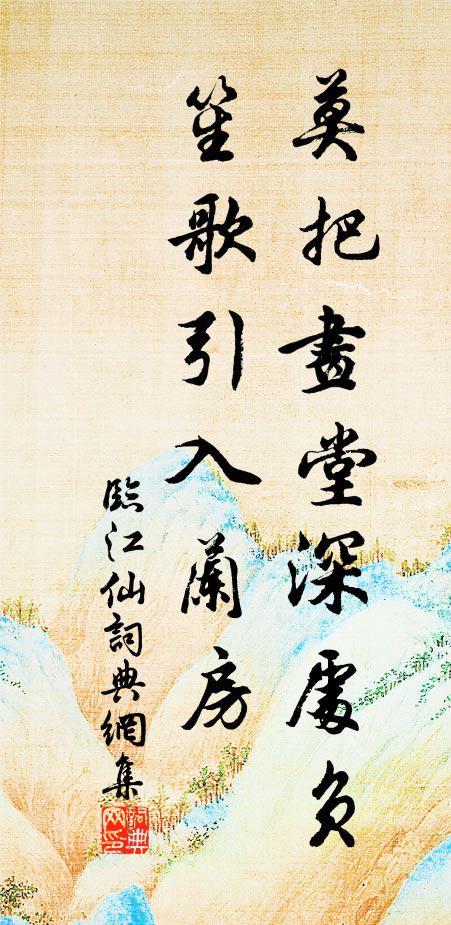 莫把畫堂深處負
笙歌引入蘭房
臨江仙詞典網集
詞典